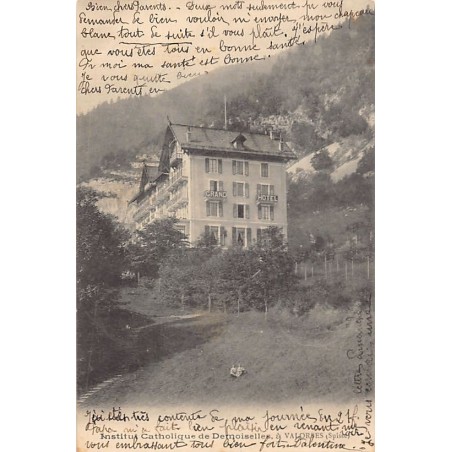 Bien chers Parents. – Deux mots seulement pour vous
demander de bien vouloir m'envoyer mon chapeau
blanc tout de suite s'il vous plaît. J'espère
que vous êtes tous en bonne santé
Pr moi ma santé est bonne.
Je vous quitte bien
chers Parents, en
GRAND HOTEL
Institut Catholique de Demoiselles, à VALORBES (Suisse)
J'ai été très contente de ma journée
Papa m'a fait bien plaisir en venant me
vous embrassant tous bien fort. Valentine